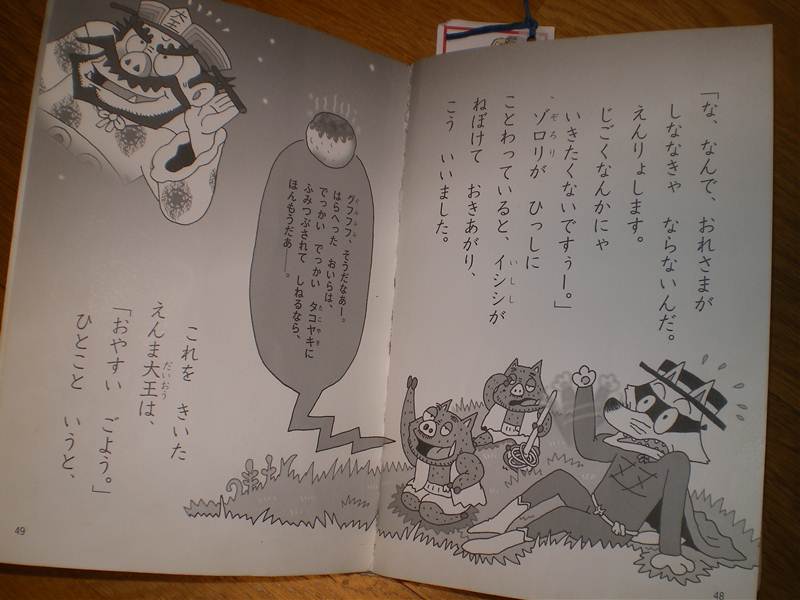 「な、なんで、おれさまが
しななきゃ ならないんだ。
えんりょします。
じごくなんかにゃ
いきたくないですぅー。」
ゾロリが ひっしに
ことわっていると、イシシが
ねぼけて おきあがり、
こう いいました。
48
グフフフ、そうだなあー。
はらへった おいらは、
でっかい でっかい タコヤキに
ふみつぶされて しねるなら、
ほんもうだあ——。
これを きいた
えんま大王は、
「おやすい ごよう。」
ひとこと いうと、
49